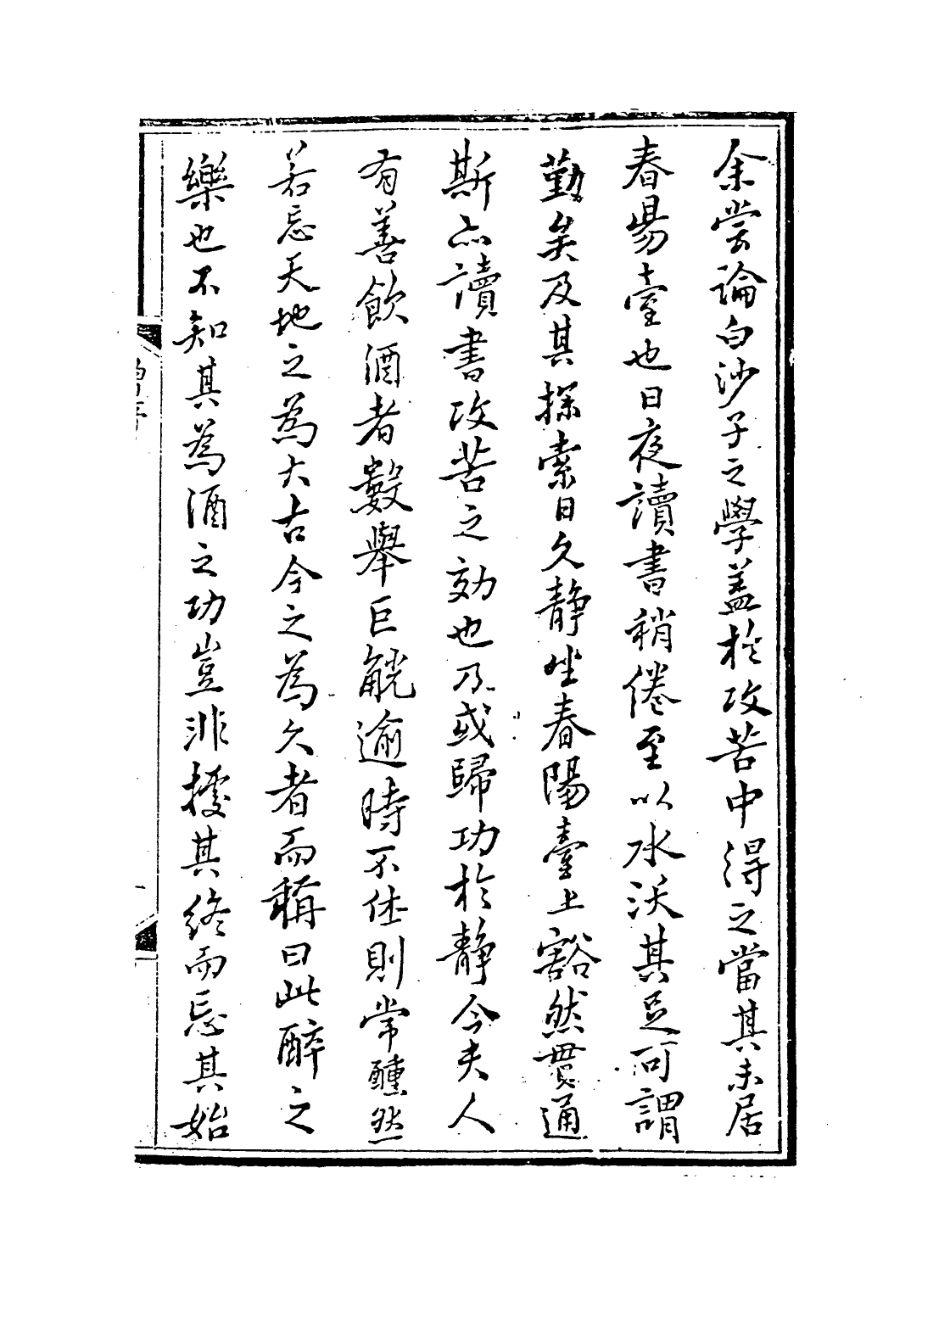 余嘗論白沙子之學蓋於攻苦中得之當其未居
春昜臺也日夜讀書稍倦至以水沃其足可謂
勤矣及其探索日久靜坐春陽臺上豁然貫通
斯亦讀書攻苦之効也乃或歸功於靜今夫人
有善飲酒者數舉巨觥逾時不休則常醺然
若忘天地之為大古今之為久者而稱曰此醉之
樂也不知其為酒之功豈非據其終而忘其始